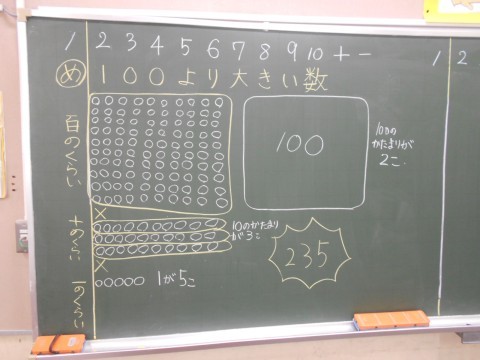 1 2 3 4 5 6 7 8 9 10 + −
1 2
め 100より大きい数
百のくらい
100
100の
かたまりが
2こ.
十のくらい
10のかたまり
が3こ
235
一のくらい
1が5こ